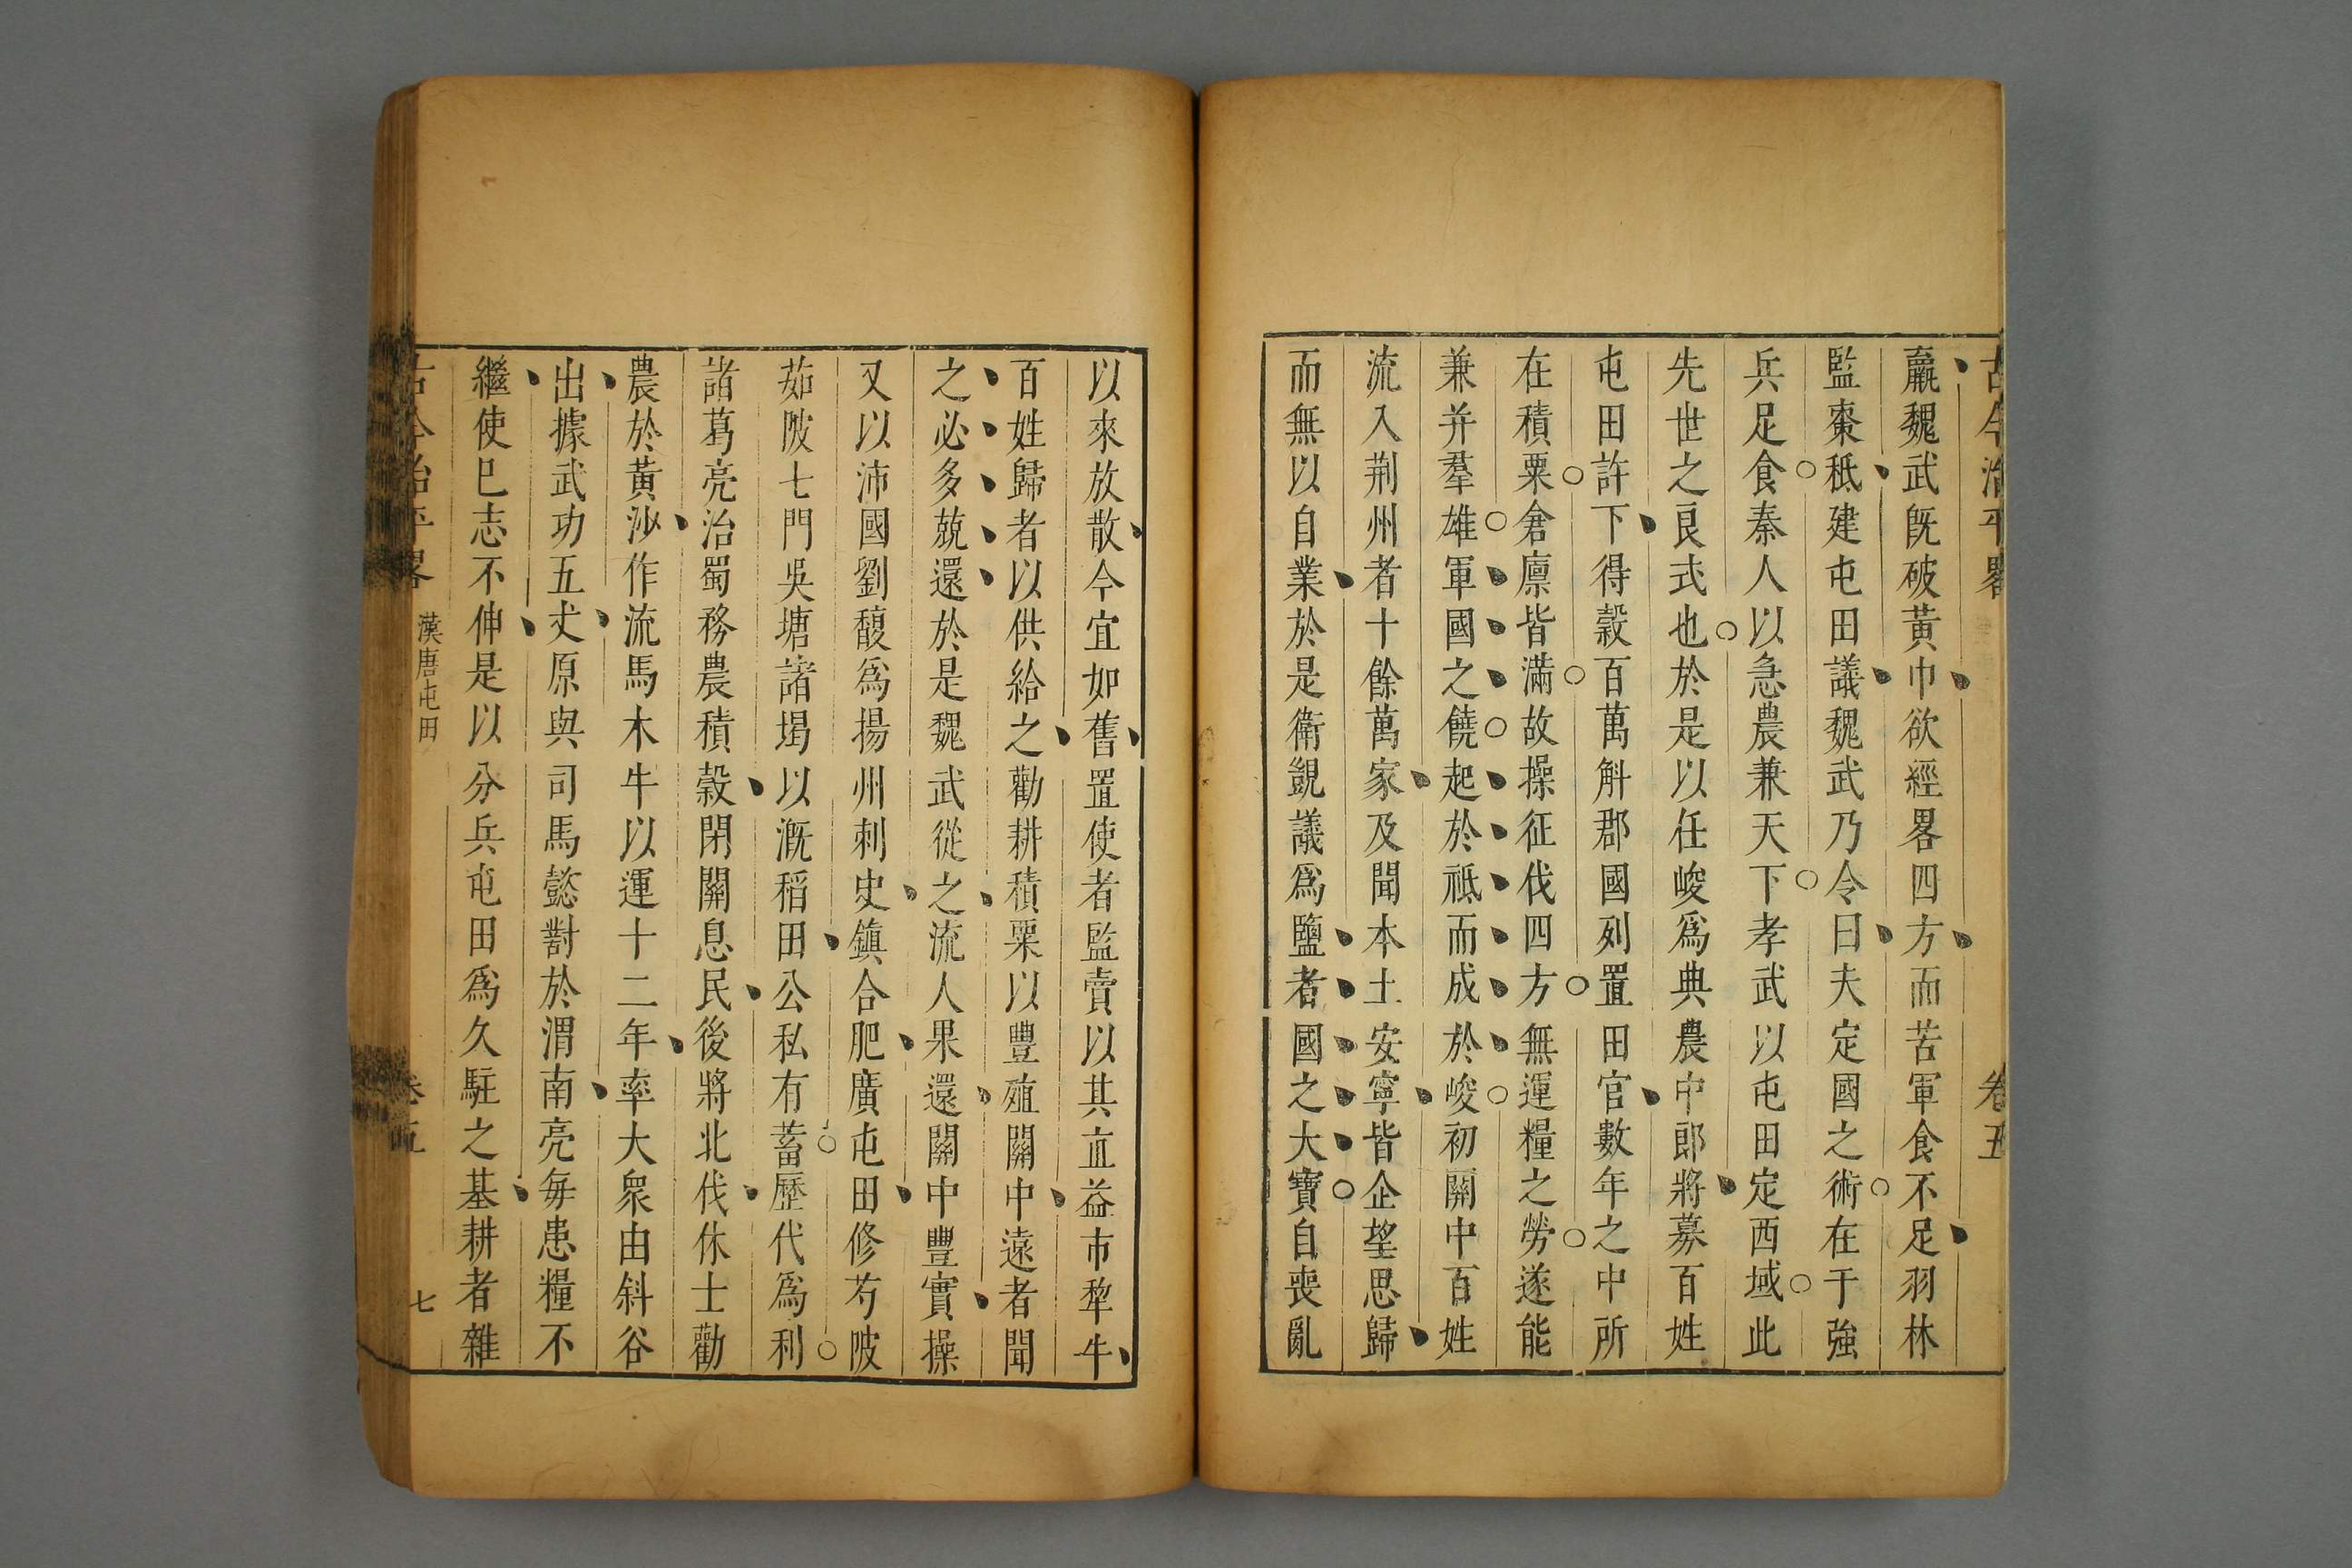 古今治平畧
卷五
羸魏武旣破黃巾欲經畧四方而苦軍食不足羽林
監棗秪建屯田議魏武乃令曰夫定國之術在于強
兵足食秦人以急農兼天下孝武以屯田定西域此
先世之良式也於是以任峻爲典農中郎將募百姓
屯田許下得穀百萬斛郡國列置田官數年之中所
在積粟倉廪皆滿故操征伐四方無運糧之勞遂能
兼并羣雄軍國之饒起於祗而成於峻初關中百姓
流入荆州者十餘萬家及聞本土安寧皆企望思歸
而無以自業於是衛覬議爲鹽者國之大寶自喪亂
以來放散今宜如舊置使者監賣以其直益市犂牛
百姓歸者以供給之勸耕積粟以豐殖關中遠者聞
之必多兢還於是魏武從之流人果還關中豐實操
又以沛國劉馥爲揚州刺史鎮合肥廣屯田修芍陂
茹陂七門吳塘諸堨以漑稻田公私有蓄歷代爲利
諸葛亮治蜀務農積穀閉關息民後將北伐休士勸
農於黃沙作流馬木牛以運十二年率大衆由斜谷
出據武功五丈原與司馬懿對於渭南亮每患糧不
繼使巳志不伸是以分兵屯田爲久駐之基耕者雜
古今治平畧
漢唐屯田
卷五
七